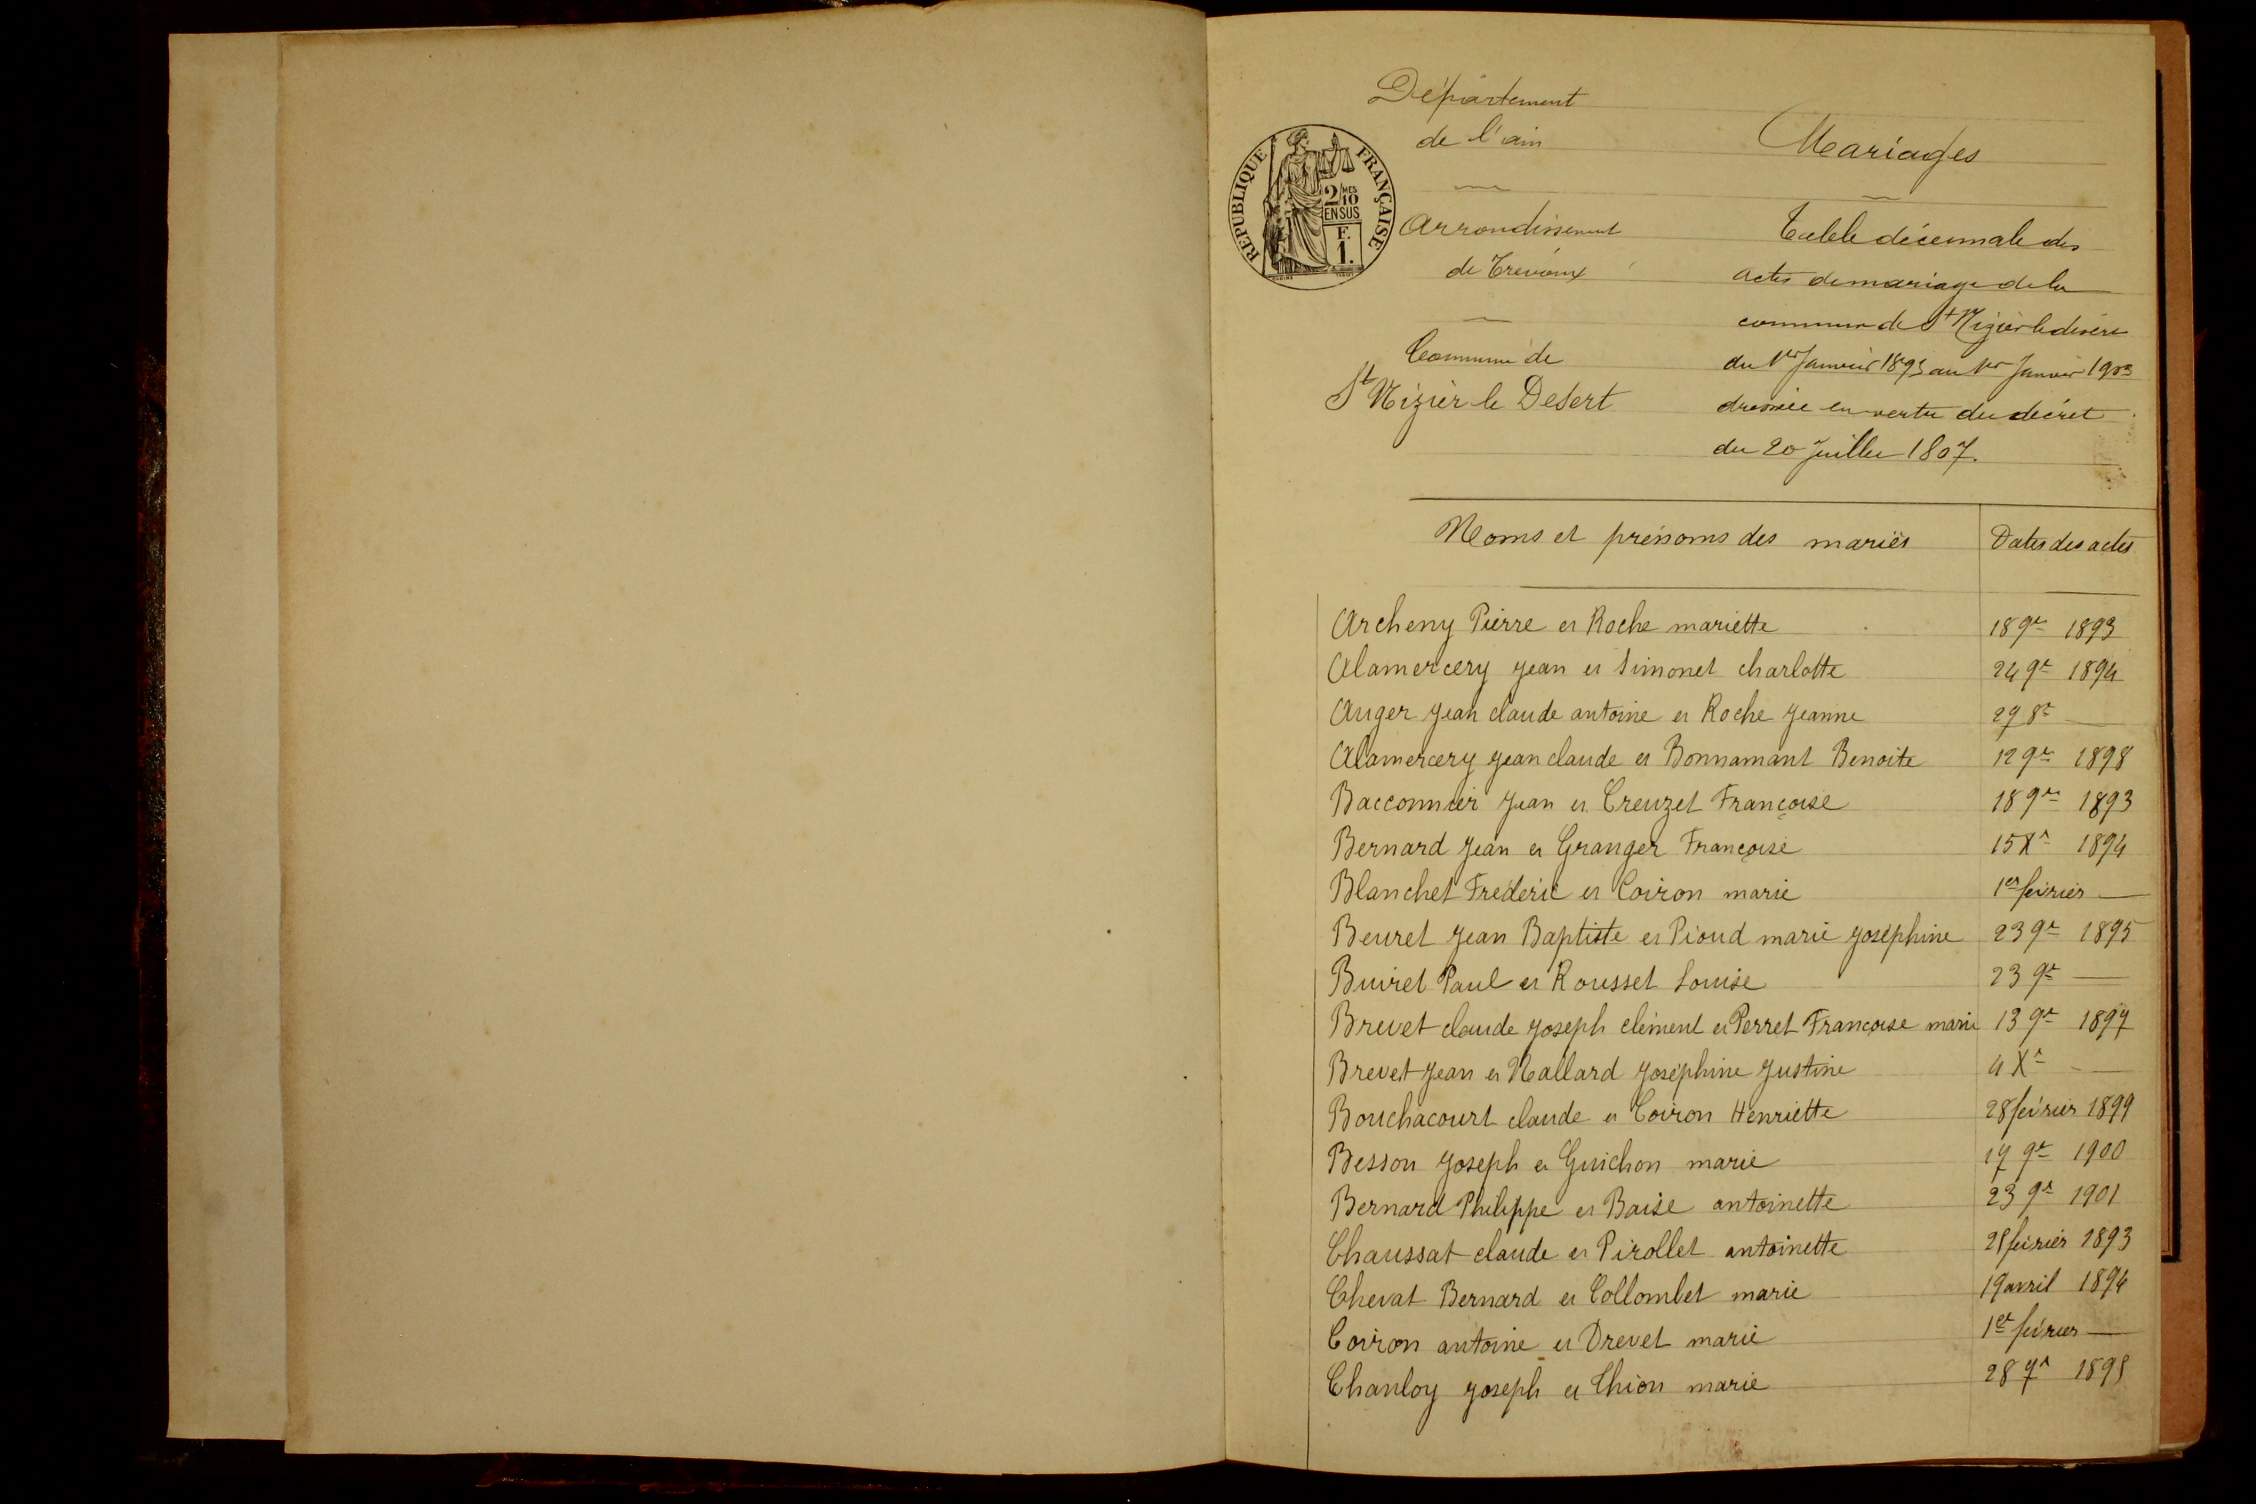 Département
de l'ain
Mariages
REPUBLIQUE FRANÇAISE
2/10 MES
EN SUS
F.
1.
Arrondissement
de Trévoux
Table décennale des
actes de mariage de la
commune de St Nizier le désert
du 1er Janvier 1893 au 1er Janvier 1903
dressée en vertu du décret
du 20 Juillet 1807.
Commune de
St Nizier le Désert
Noms et prénoms des mariés Dates des actes
Archeny Pierre et Roche mariette 18 9re 1893
Alamercery Jean et Simonet charlotte 24 9re 1894
Auger Jean claude antoine et Roche Jeanne 27 8re —
Alamercery Jean claude et Bonnamant Benoite 12 9re 1898
Bacconnier Jean et Creuzet Françoise 18 9re 1893
Bernard Jean et Granger Françoise 15 Xre 1894
Blanchet Fréderic et Coiron marie 1er février —
Beuret Jean Baptiste et Pioud marie Joséphine 23 9re 1895
Buiret Paul et Rousset Louise 23 9re —
Brevet claude Joseph clément et Perret Françoise marie 13 9re 1897
Brevet Jean et Nallard Joséphine Justine 4 Xre —
Bouchacourt claude et Coiron Henriette 28 février 1899
Besson Joseph et Guichon marie 17 9re 1900
Bernard Philippe et Baise antoinette 23 9re 1901
Chaussat claude et Pirollet antoinette février 1893
Chevat Bernard et Collombet marie 19 avril 1894
Coiron antoine et Drevet marie 1er février —
Chanloy Joseph et Chion marie 28 7re